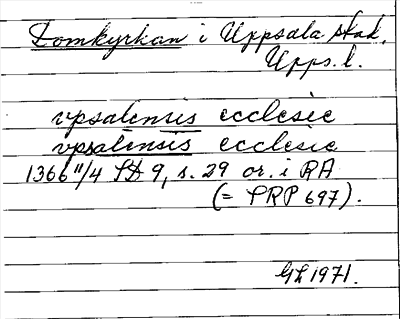 Domkyrkan i Uppsala stad,
Upps. l.
vpsalensis ecclesie
vpsalensis ecclesie
1366 11/4 SD 9, s. 29 or. i RA
(= PRP 697).
GL 1971.